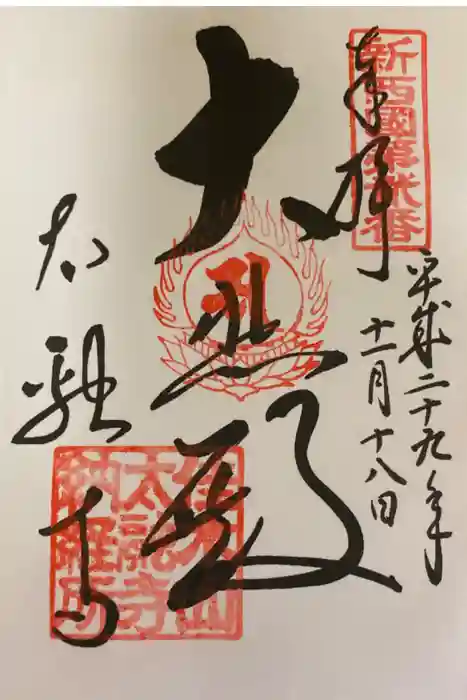 新西國第弐番
奉拝
平成二十九年
十一月十八日
大悲殿
太融寺
佳木山
太融寺
納經所